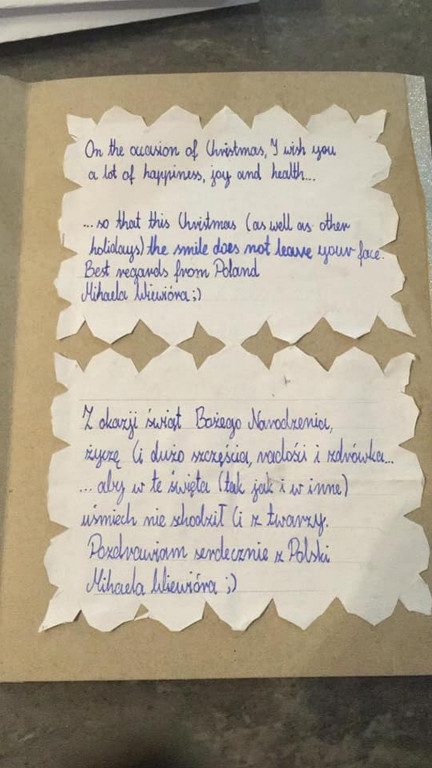 On the occasion of Christmas, I wish you
a lot of happiness, joy and health...
...so that this Christmas (as well as other
holidays) the smile does not leave your face.
Best regards from Poland
Mihaela Wiewióra ;)
Z okazji świąt Bożego Narodzenia,
życzę Ci dużo szczęścia, radości i zdrówka...
...aby w te święta (tak jak i w inne)
uśmiech nie schodził Ci z twarzy.
Pozdrawiam serdecznie z Polski
Mihaela Wiewióra ;)